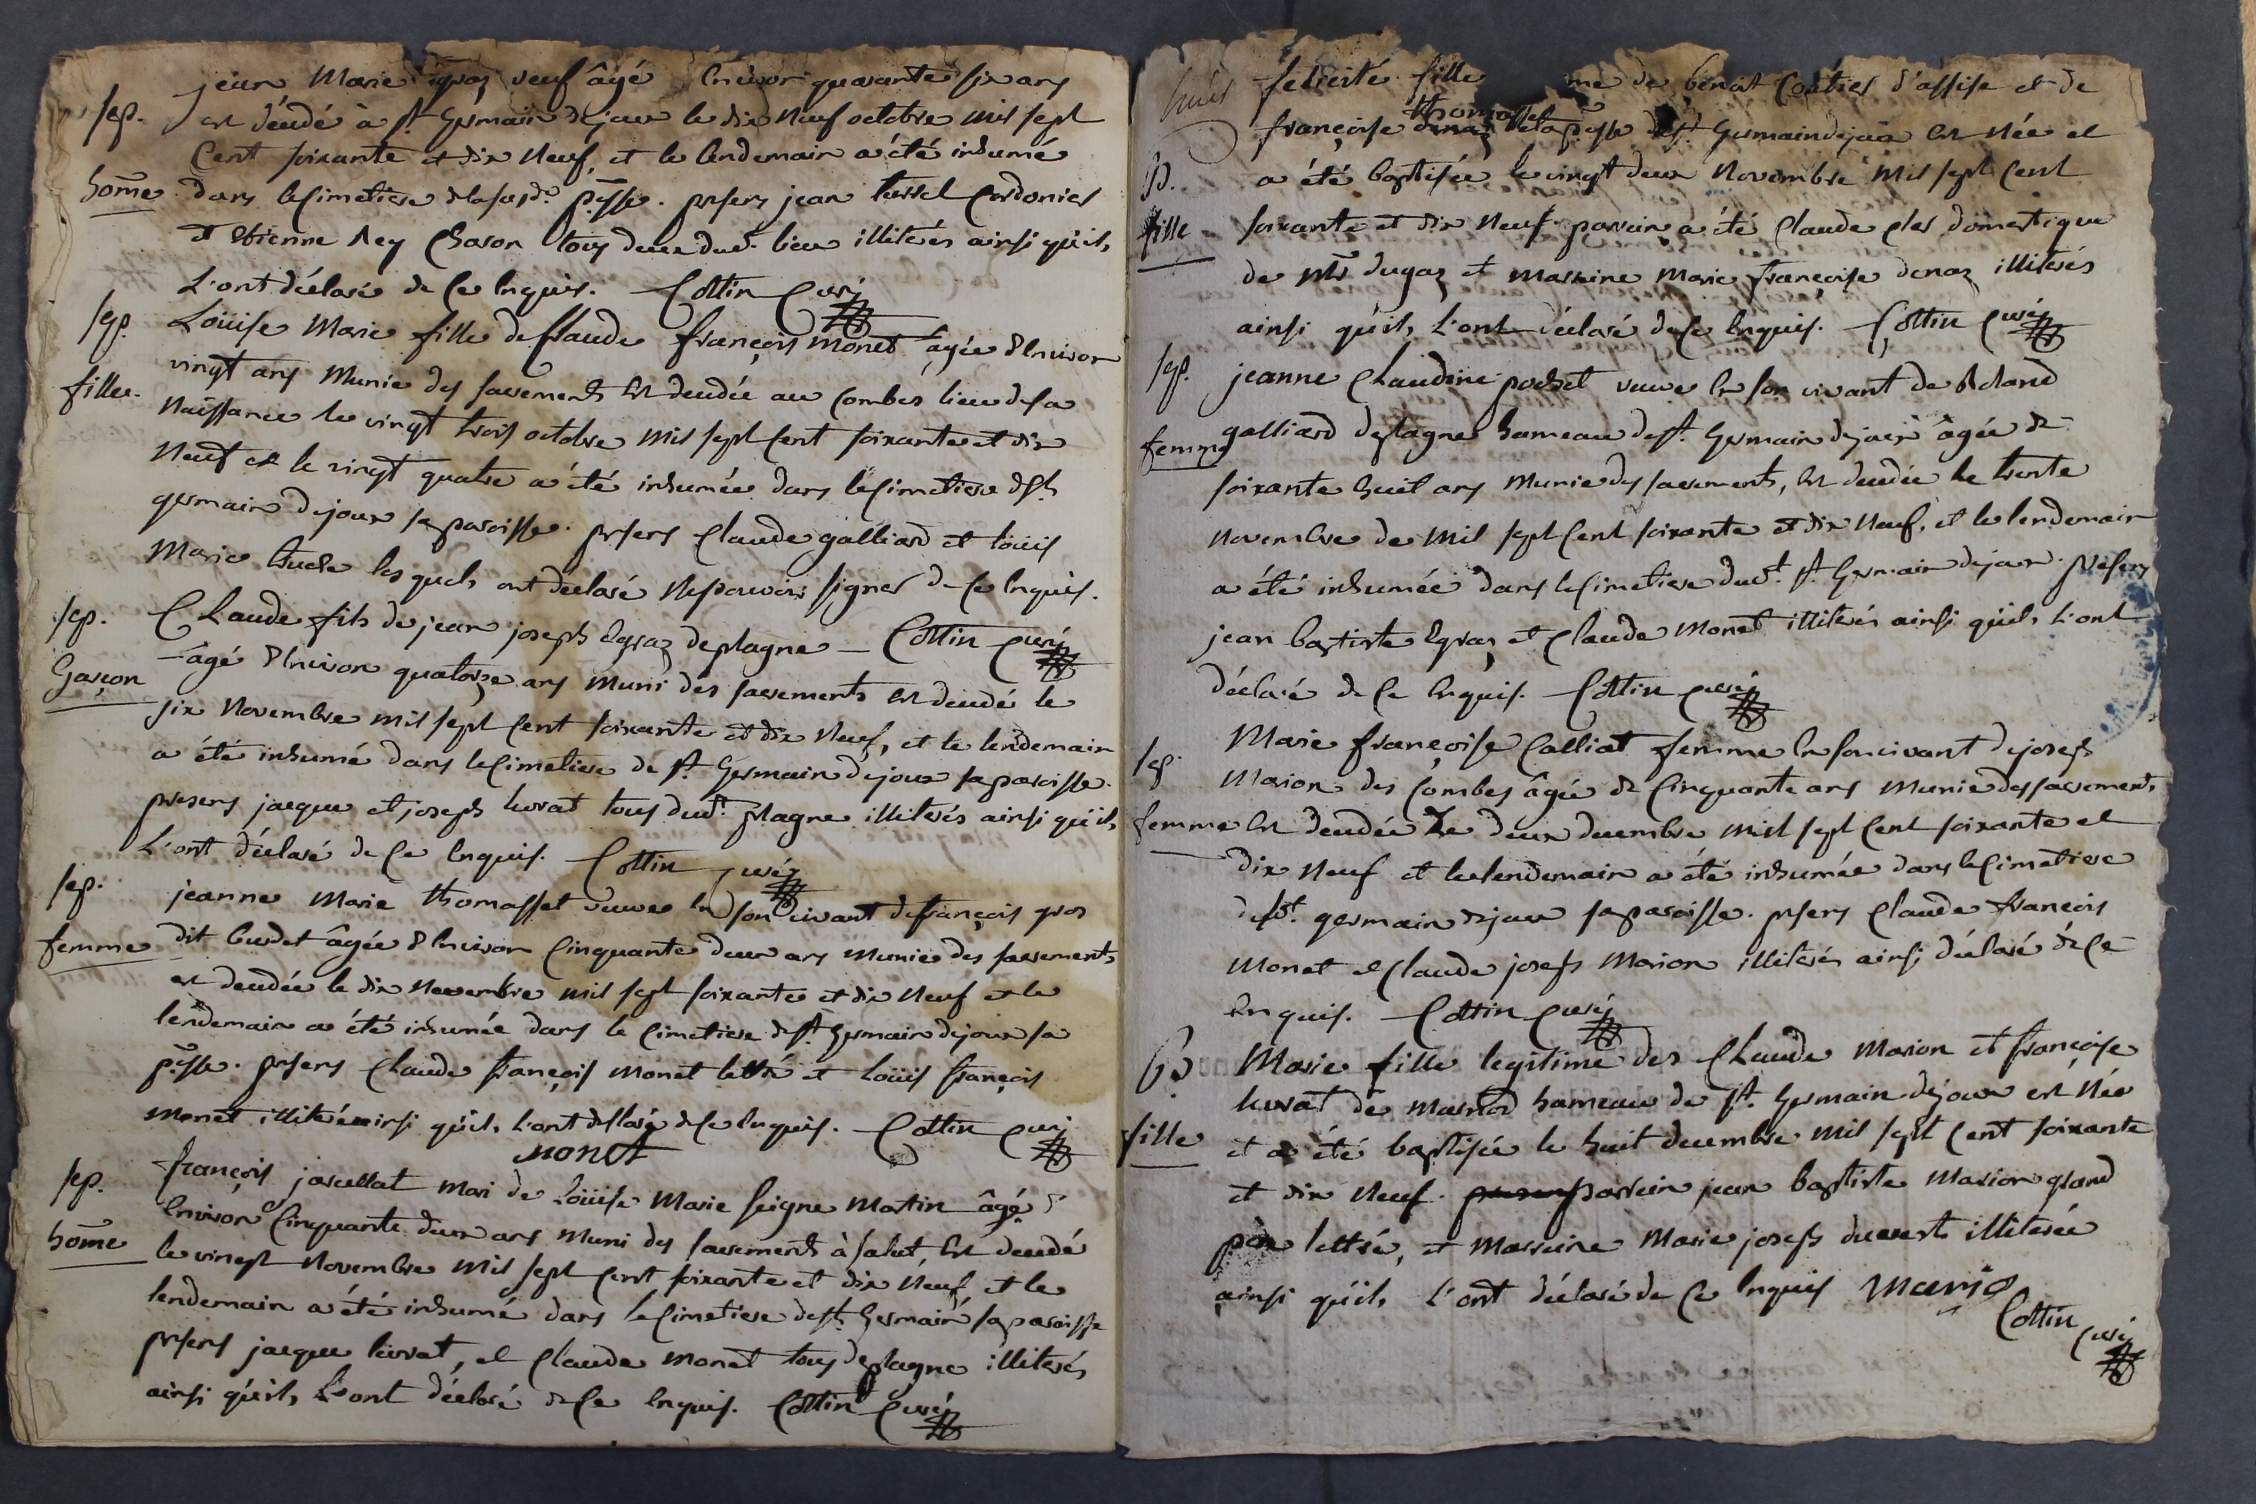 jean Marie veuf âgé Environ quarante six ans
sep. est décédé à st. Germain de joux le dix Neuf octobre mil sept
Cent soixante et dix Neuf, et le lendemain a été inhumé
home dans le Cimetiere de la susd.e p.sse. prsens jean tersel Cordonier
et Etienne Rey Charon tous deux dud. lieu illiterés ainsi qu'ils
L'ont déclaré de Ce Enquis. Cottin Curé
sep. Loüise Marie fille de Claude françois monet âgée d'Environ
fille. vingt ans Munie des sacrements Est decedée au Combes lieu de sa
Naissance le vingt trois octobre mil sept Cent soixante et dix
Neuf et le vingt quatre a été inhumée dans le Cimetiere de st.
germain de joux sa paroisse. prsens Claude galliard et loüis
Marie tuche les quels ont déclaré Ne pouvoir signer de Ce Enquis.
Cottin Curé
sep. Claude fils de jean joseph Egraz de plagne
Garçon âgé d'Environ quatorze ans Muni des sacrements Est decedé le
six Novembre mil sept Cent soixante et dix Neuf, et le lendemain
a été inhumé dans le Cimetiere de st. Germain de joux sa paroisse.
presens jacque et joseph livrat tous dud. plagne illiterés ainsi qu'ils
L'ont déclaré de Ce Enquis. Cottin Curé
sep. jeanne Marie thomasset veuve En son vivant de françois gros
femme dit burdet âgée d'Environ Cinquante deux ans Munie des sacrements
est decedée le dix Novembre mil sept soixante et dix Neuf et le
lendemain a été inhumée dans le Cimetiere de st. Germain de joux sa
p.sse. prsens Claude françois Monet lettré et Loüis françois
Monet illiteré ainsi qu'ils L'ont declaré de Ce Enquis. Cottin Curé
monet
sep. françois jarcellat mari de Loüise Marie seigne Martin âgé d'
Environ Cinquante deux ans Muni des sacrements à salut, Est decedé
home le vingt Novembre mil sept Cent soixante et dix Neuf, et le
lendemain a été inhumé dans le Cimetiere de st. Germain sa paroisse
prsens jacque livrat, et Claude Monet tous de plagne illiterés
ainsi qu'ils L'ont déclaré de Ce Enquis. Cottin Curé
felicité fille me de benoit d'assise et de
thomasset
françoise denaz de la p.sse de st. Germain de joux Est Née et
B. a été baptisée le vingt deux Novembre mil sept Cent
fille soixante et dix Neuf. parrain a été Claude cler domestique
de Mr dugaz et marraine Marie françoise denaz illiterés
ainsi qu'ils L'ont déclaré de Ce Enquis. Cottin Curé
sep. jeanne Claudine pochet veuve En son vivant de Roland
femme galliard de plagne hameau de st. Germain de joux âgée de
soixante huit ans Munie des sacrements, Est decedée le trente
Novembre de mil sept Cent soixante et dix Neuf, et le lendemain
a été inhumée dans le Cimetiere dud.t st. Germain de joux. presens
jean baptiste Egraz et Claude Monet illiterés ainsi qu'ils L'ont
déclaré de Ce Enquis. Cottin Curé
sep. Marie françoise Calliat femme En son vivant de joseph
Marion des Combes âgée de Cinquante ans Munie des sacrements
femme Est decedée Le deux decembre mil sept Cent soixante et
dix Neuf et le lendemain a été inhumée dans le Cimetiere
de st. germain de joux sa paroisse. prsens Claude françois
Monet et Claude joseph Marion illiterés ainsi déclaré de Ce
Enquis. Cottin Curé
B. Marie fille legitime des Claude Marion et françoise
livrat de marnod hameau de st. Germain de joux est Née
fille et a été baptisée le huit decembre mil sept Cent soixante
et dix Neuf. parrain jean baptiste Marion grand
pere lettré, et marraine Marie joseph ducret illiterée
ainsi qu'ils L'ont déclaré de Ce Enquis mario
Cottin Curé